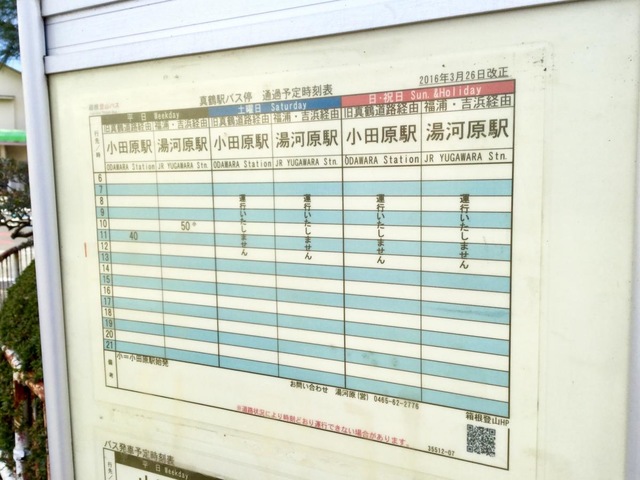 2016年3月26日改正
真鶴駅バス停 通過予定時刻表
箱根登山バス
平日 Weekday 土曜日 Saturday 日・祝日 Sun.&Holiday
旧真鶴道路経由 福浦・吉浜経由 旧真鶴道路経由 福浦・吉浜経由 旧真鶴道路経由 福浦・吉浜経由
行先/時 小田原駅 湯河原駅 小田原駅 湯河原駅 小田原駅 湯河原駅
ODAWARA Station JR YUGAWARA Stn. ODAWARA Station JR YUGAWARA Stn. ODAWARA Station JR YUGAWARA Stn.
6
7
8 運行いたしません 運行いたしません 運行いたしません 運行いたしません
9
10 50
11 40
12
13
14
15
16
17
18
19
20
21
備考 小=小田原駅始発
お問い合わせ 湯河原(営) 0465-62-2776
※道路状況により時刻どおり運行できない場合があります。
箱根登山HP
35512-07
バス発車予定時刻表
平日 Weekday